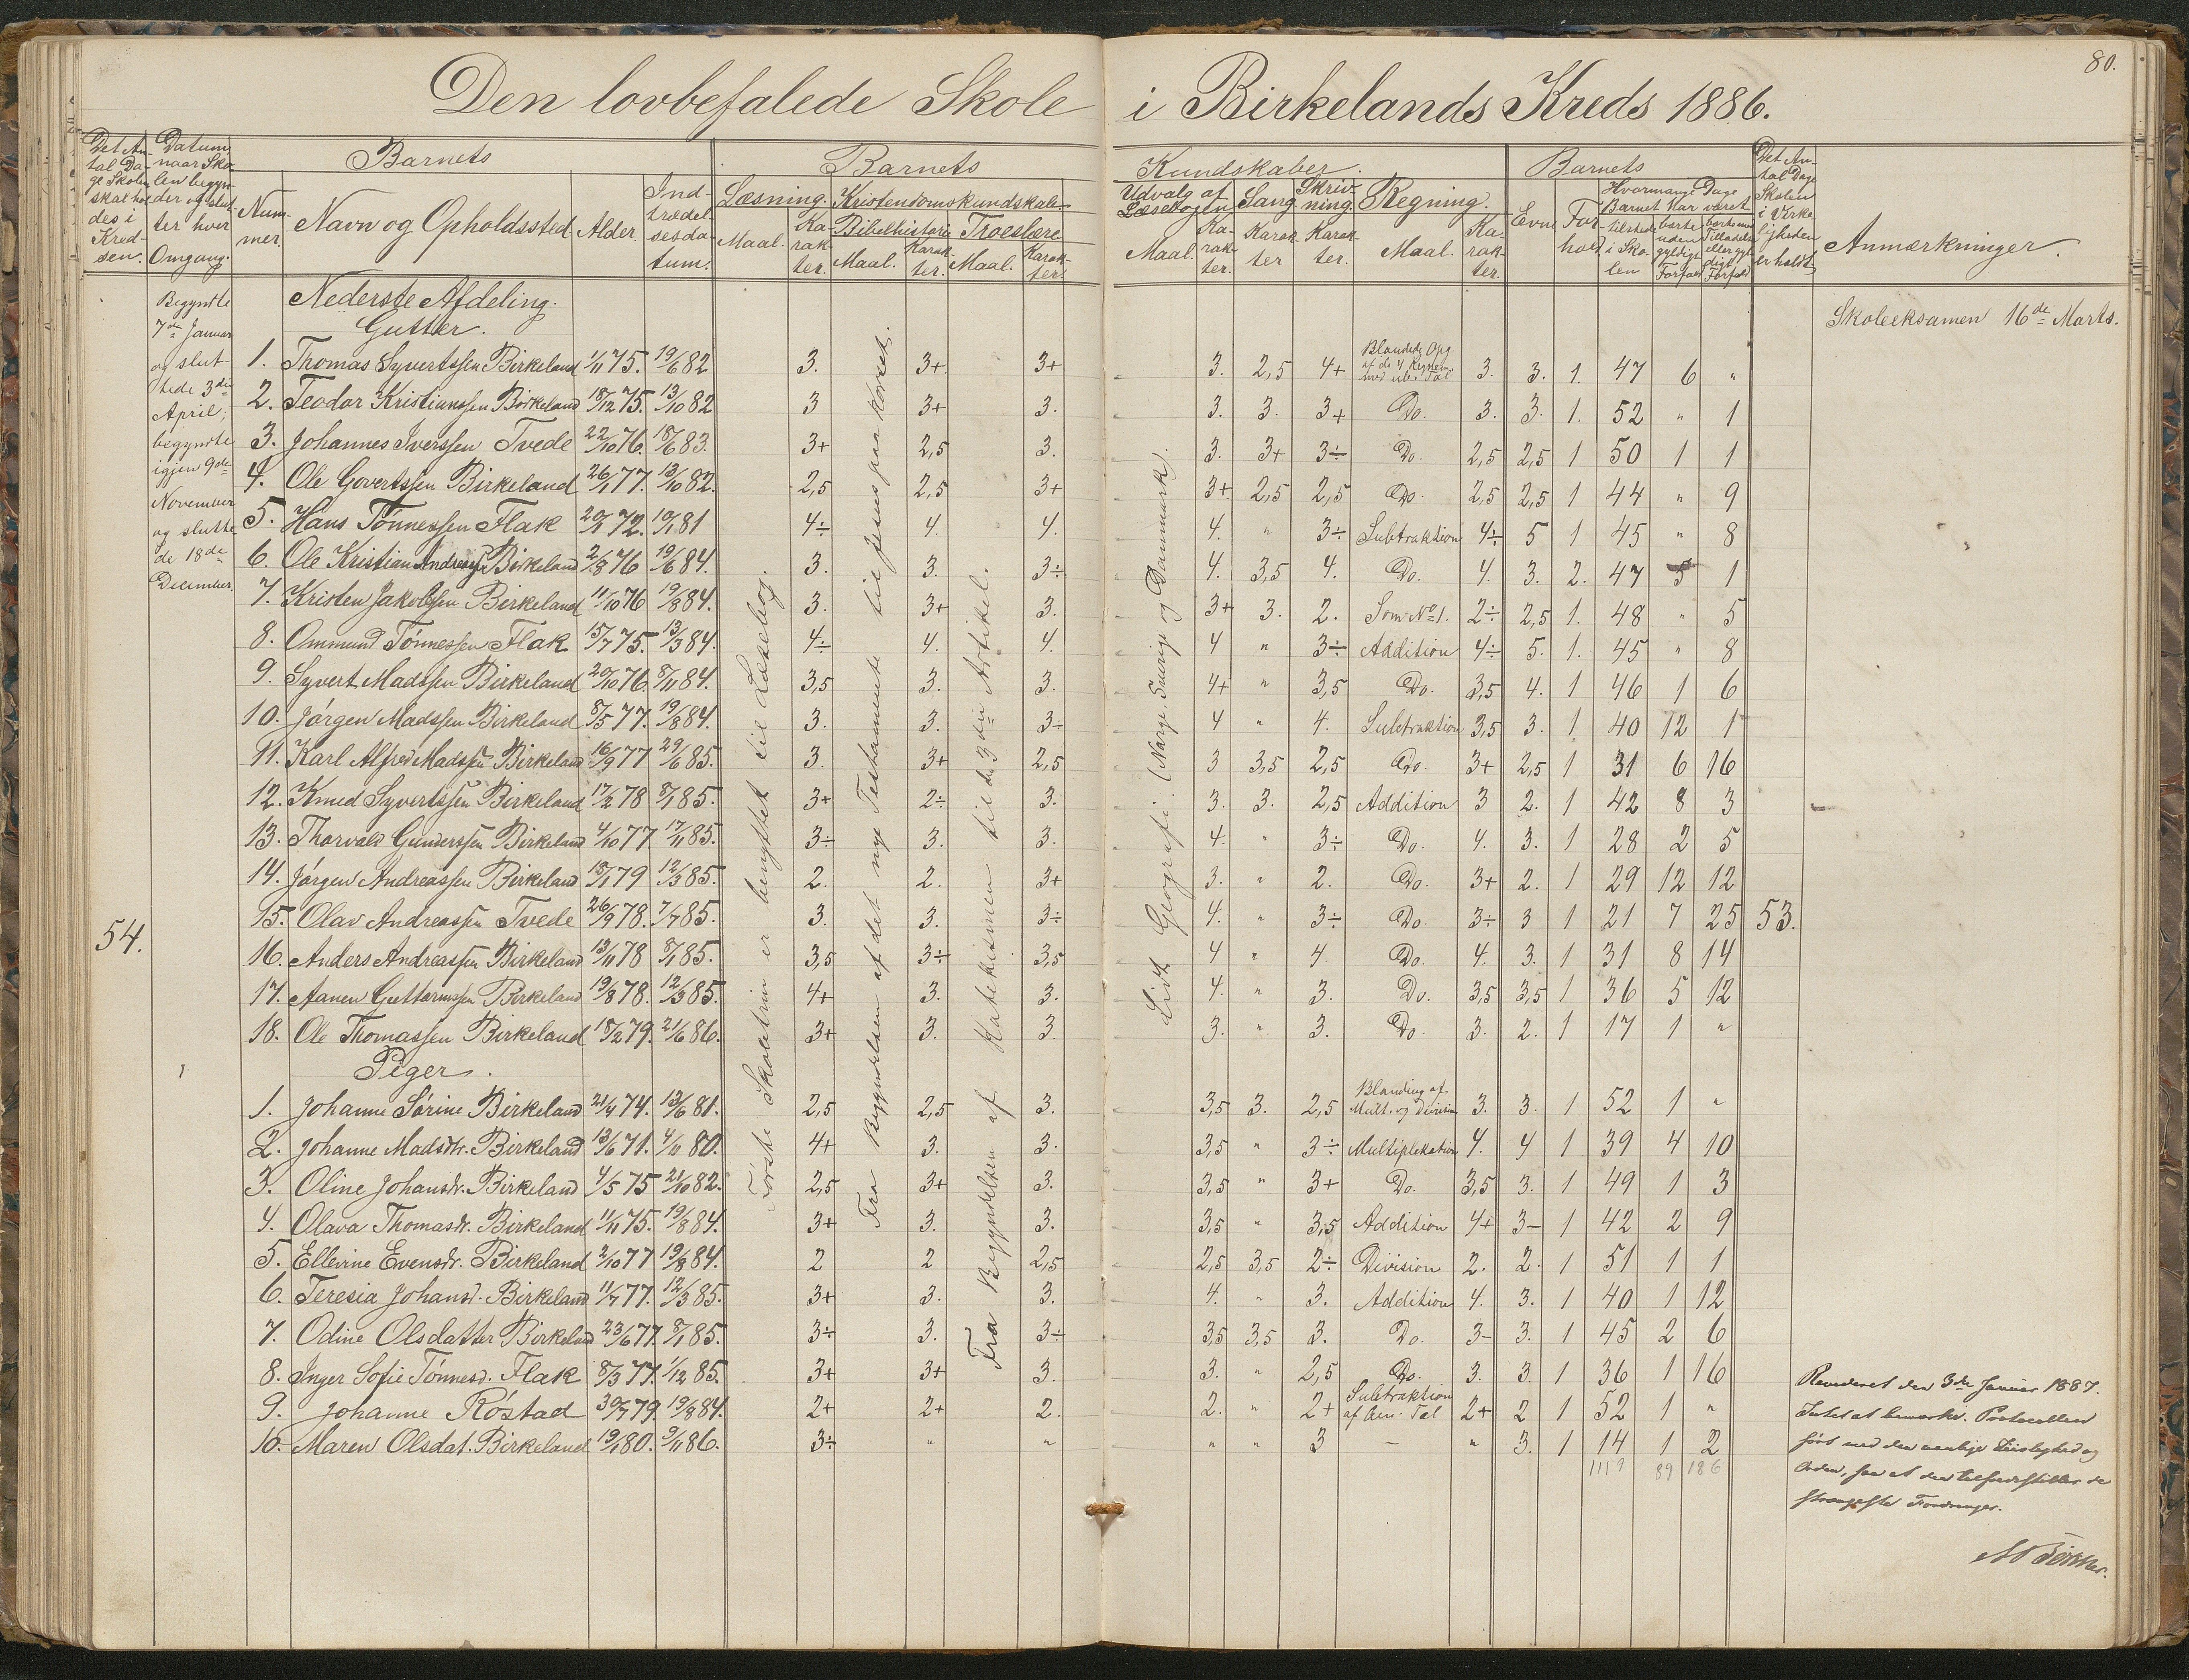 80.
Den lovbefalede Skole i Birkelands Kreds 1886.
Det Antal Dage Skolen skal holdes i Kredsen.
Datum, naar Skolen begynder og slutter hver Omgang.
Barnets
Nummer
Navn og Opholdssted
Alder.
Indtrædelsesdatum.
Barnets
Læsning.
Maal.
Karakter.
Kristendomskundskab
Bibelhistorie
Maal.
Karakter.
Troeslære
Maal.
Karakter.
Kundskaber.
Udvalg af Læsebogen
Maal.
Karakter.
Sang
Karakter
Skrivning.
Karakter.
Regning.
Maal.
Karakter.
Barnets
Evne
Forhold
Hvormange Dage Barnet har været
tilstede i Skolen
borte uden gyldigt Forfald
borte med Tilladelse eller gyldigt Forfald
Det Antal Dage Skolen i Virkeligheden er holdt
Anmærkninger.
Begyndte
7de Januar
og slut-
tede 3die
April,
begyndte
igjen 9de
November
og slutte
de 18de
December.
54.
Nederste Afdeling.
Gutter.
Skoleeksamen 16de Marts.
1. Thomas Syvertssen Birkeland 1/11 75. 19/6 82 3. 3+ 3+ 3. 2,5 4+ Blandede Opg. af de 4 Regnem. med ube. Tal 3. 3. 1. 47 6 "
2. Teodor Kristianssen Birkeland 18/12 75. 13/10 82 3 3+ 3. 3. 3. 3+ Do. 3. 3. 1. 52 " 1
3. Johannes Iverssen Tvede 22/10 76. 18/6 83. 3+ 2,5 3. 3. 3+ 3÷ Do. 2,5 2,5 1 50 1 1
4. Ole Govertssen Birkeland 26/1 77. 13/10 82. 2,5 2,5 3+ 3+ 2,5 2,5 Do. 2,5 2,5 1 44 " 9
5. Hans Tönnessen Flak 20/1 72. 10/1 81 4÷ 4. 4. 4. " 3÷ Subtraktion 4÷ 5 1 45 " 8
6. Ole Kristian Andreass. Birkeland 2/8 76 19/6 84. 3. 3. 3÷ 4. 3,5 4. Do. 4. 3. 2. 47 5 1
7. Kristen Jakobssen Birkeland 11/10 76 19/8 84. 3. 3+ 3. 3+ 3. 2. Som No 1. 2÷ 2,5 1. 48 " 5
8. Ommund Tönnessen Flak 15/7 75. 13/3 84. 4÷ 4. 4. 4 " 3÷ Addition 4÷ 5. 1. 45 " 8
9. Syvert Madssen Birkeland 20/10 76. 8/11 84. 3,5 3. 3. 4+ " 3,5 Do. 3,5 4. 1 46 1 6
10. Jörgen Madssen Birkeland 8/5 77. 19/8 84. 3. 3. 3÷ 4 " 4. Subtraktion 3,5 3. 1. 40 12 1
11. Karl Alfred Madssen Birkeland 16/9 77 29/6 85. 3. 3+ 2,5 3 3,5 2,5 Do. 3+ 2,5 1 31 6 16
12. Knud Syvertssen Birkeland 17/2 78 8/1 85. 3+ 2÷ 3. 3. 3. 2,5 Addition 3 2. 1 42 8 3
13. Thorvald Gunderssen Birkeland 4/10 77 17/11 85. 3÷ 3. 3. 4. " 3÷ Do. 4. 3. 1 28 2 5
14. Jörgen Andreassen Birkeland 18/1 79 12/3 85. 2. 2. 3+ 3. " 2. Do. 3+ 2. 1 29 12 12
15. Olav Andreassen Tvede 26/9 78. 7/7 85. 3. 3. 3÷ 4. " 3÷ Do. 3÷ 3 1 21 7 25 53.
16. Anders Andreassen Birkeland 13/11 78 8/1 85. 3,5 3÷ 3,5 4 " 4. Do. 4. 3. 1 31 8 14
17. Aanen Guttormssen Birkeland 19/8 78. 12/3 85. 4+ 3. 3. 4. " 3. Do. 3,5 3,5 1 36 5 12
18. Ole Thomassen Birkeland 18/2 79. 21/6 86. 3+ 3. 3 3. " 3. Do. 3. 2. 1 17 1 "
Piger.
1. Johanne Sörine Birkeland 21/4 74. 13/6 81. 2,5 2,5 3. 3,5 3. 2,5 Blanding af Mult. og Division 3. 3. 1 52 1 "
2. Johanne Madsdtr. Birkeland 13/6 71. 4/11 80. 4+ 3. 3. 3,5 " 3÷ Multiplikation 4. 4 1 39 4 10
3. Oline Johansdr. Birkeland 4/5 75 21/10 82. 2,5 3+ 3. 3,5 " 3+ Do. 3,5 3. 1 49 1 3
4. Olava Thomasdr. Birkeland 11/11 75. 19/8 84. 3+ 3. 3. 3,5 " 3,5 Addition 4+ 3- 1 42 2 9
5. Ellevine Evensdr. Birkeland 2/10 77 19/8 84. 2 2 2,5 2,5 3,5 2÷ Division 2. 2. 1 51 1 1
6. Teresia Johansd. Birkeland 11/7 77. 12/3 85. 3+ 3. 3. 4. " 3. Addition 4. 3. 1 40 1 12
7. Odine Olsdatter Birkeland 23/6 77. 8/1 85. 3÷ 3. 3÷ 3,5 3,5 3. Do. 3- 3. 1 45 2 6
8. Inger Sofie Tönnesd. Flak 8/3 77. 1/12 85. 3+ 3+ 3. 3. " 2,5 Do. 3. 3. 1 36 1 16
9. Johanne Röstad 30/7 79. 19/8 84. 2+ 2+ 2. 2. " 2+ Subtraktion af Ben. Tal 2+ 2 1 52 1 "
10. Maren Olsdat. Birkeland 19/1 80. 9/11 86. 3÷ " " " " 3 - " 3. 1 14 1 2
1119 89 186
Förste Skoletrin er benyttet til Læsebog.
Fra Begyndelsen af det nye Testamente til Jesus paa korset.
Fra Begyndelsen af Katekismen til den 3die Artikel.
Lidt Geografi. (Norge, Sverige og Danmark).
Revideret den 3die Januar 1887.
Intet at bemærke. Protocollen
fört med den vanlige Zirlighed og
Orden, saa at den tilfredsstiller de
strængeste Fordringer.